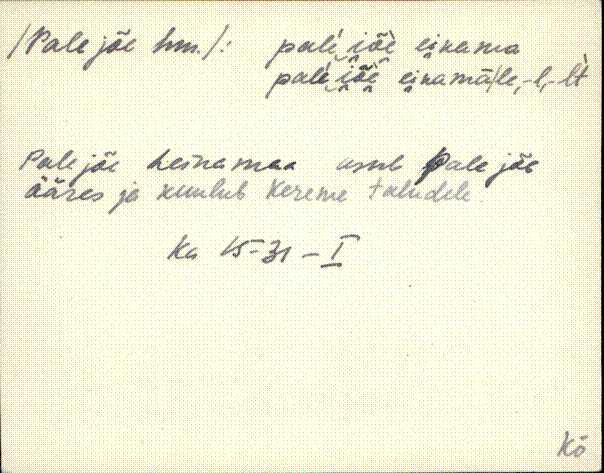 /Pale jõe hm./: pale̬ i̯õe̬ ei̯nama
pale̬ i̯õe̬ ei̯namā/le, -l, -lt
Pale jõe heinamaa asub Pale jõe
ääres ja kuulub Kereme taludele
Ka 15-31 - I
Kö